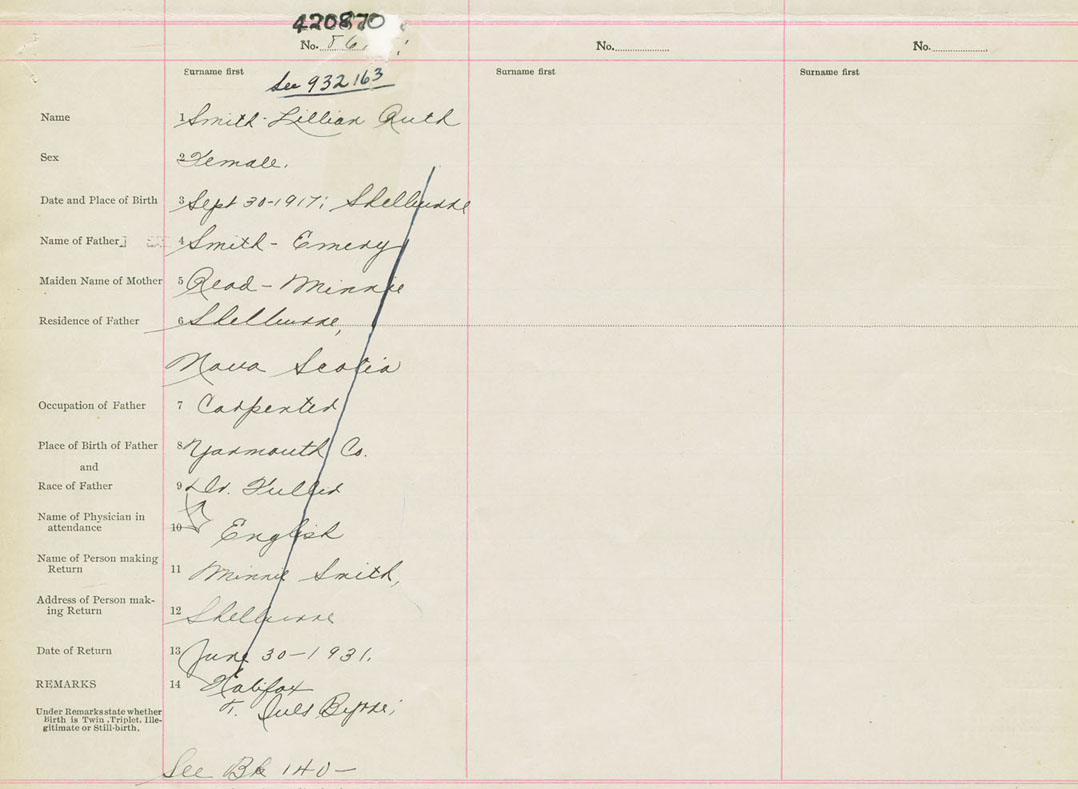 420870
No. No. No.
Surname first Surname first Surname first
See 932163
Name 1 Smith - Lillian Ruth
Sex 2 Female.
Date and Place of Birth 3 Sept 30-1917; Shelburne
Name of Father 4 Smith - Emery
Maiden Name of Mother 5 Read - Minnie
Residence of Father 6 Shelburne,
Nova Scotia
Occupation of Father 7 Carpenter
Place of Birth of Father 8 Yarmouth Co.
and
Race of Father 9 Dr. Fuller
Name of Physician in
attendance 10 English
Name of Person making
Return 11 Minnie Smith,
Address of Person mak-
ing Return 12 Shelburne
Date of Return 13 June 30-1931.
REMARKS 14 Halifax
Under Remarks state whether
Birth is Twin, Triplet, Ille-
gitimate or Still-birth.
Byrne;
See Bk 140-